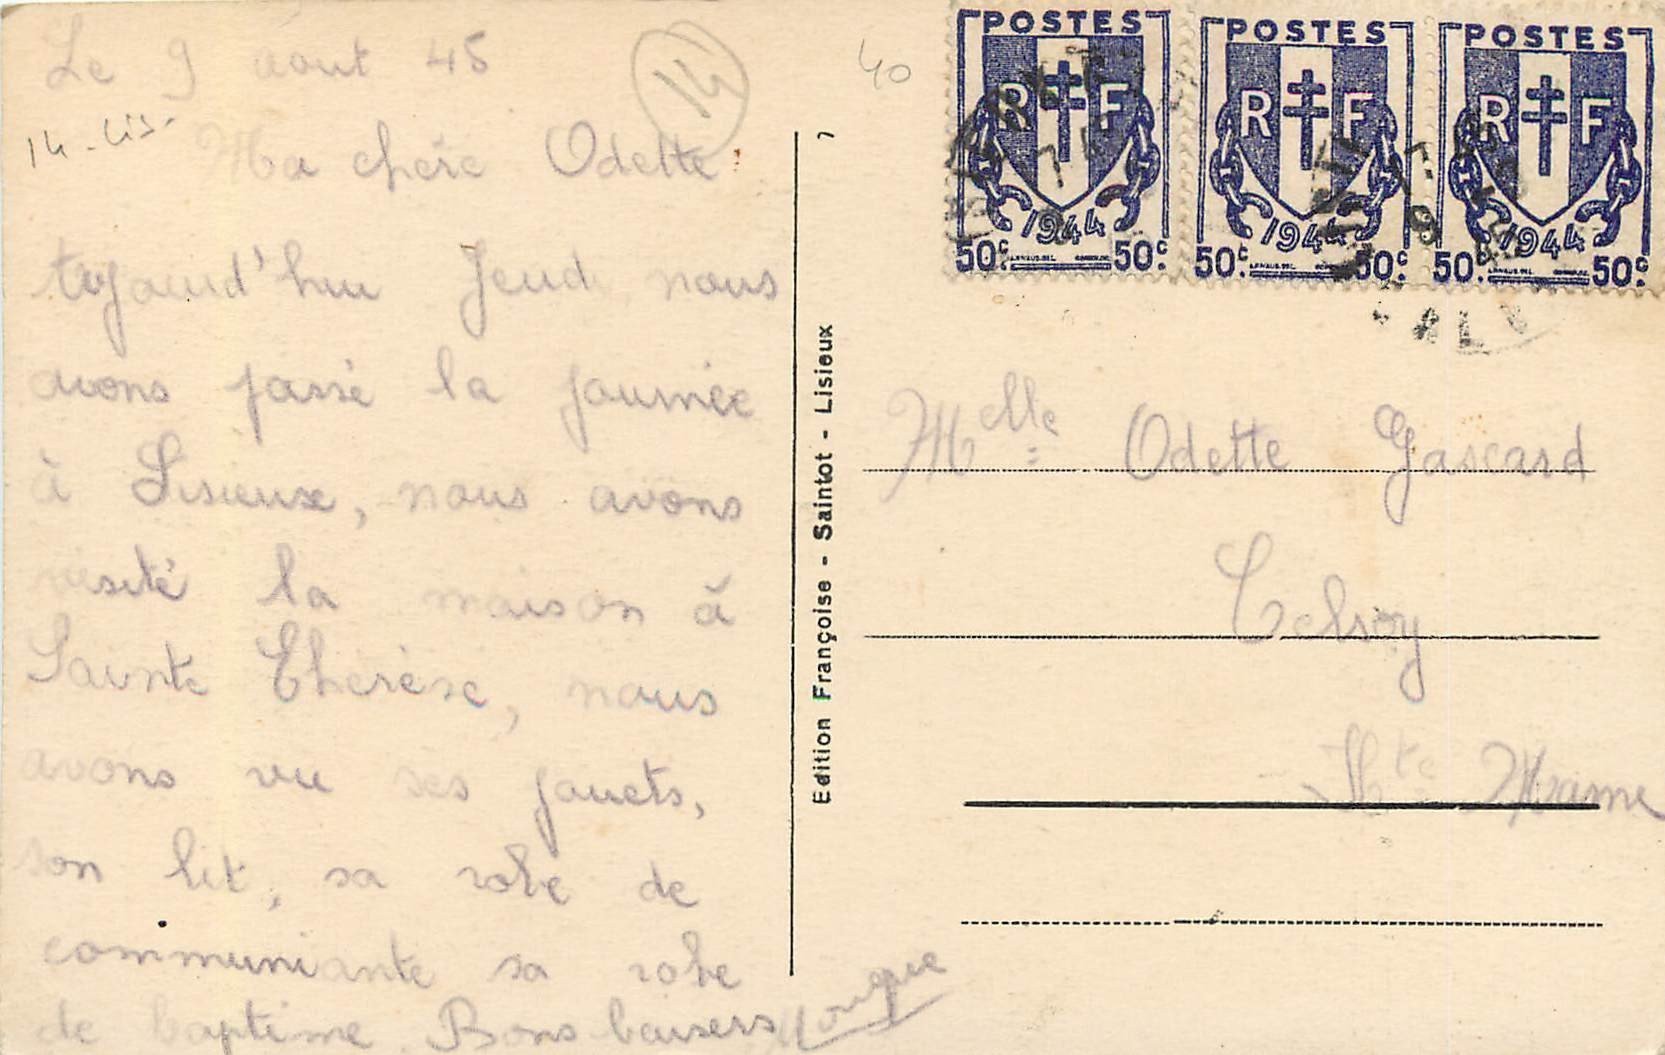 Le 9 août 45
14
40
14 - Lis -
Ma chère Odette
aujourd'hui Jeudi nous
avons passé la journée
à Lisieux, nous avons
visité la maison à
Sainte Thérèse, nous
avons vu ses jouets,
son lit, sa robe de
communiante sa robe
de baptême. Bons baisers
Monique
Edition Françoise - Saintot - Lisieux
7
POSTES
RF
1944
50c 50c
POSTES
RF
1944
50c 50c
POSTES
RF
1944
50c 50c
Melle Odette Gascard
Celsoy
Hte Marne